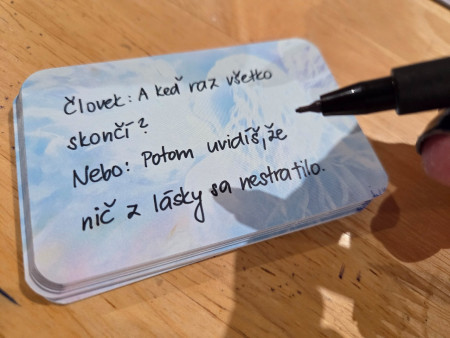 Človek: A keď raz všetko
skončí?
Nebo: Potom uvidíš, že
nič z lásky sa nestratilo.